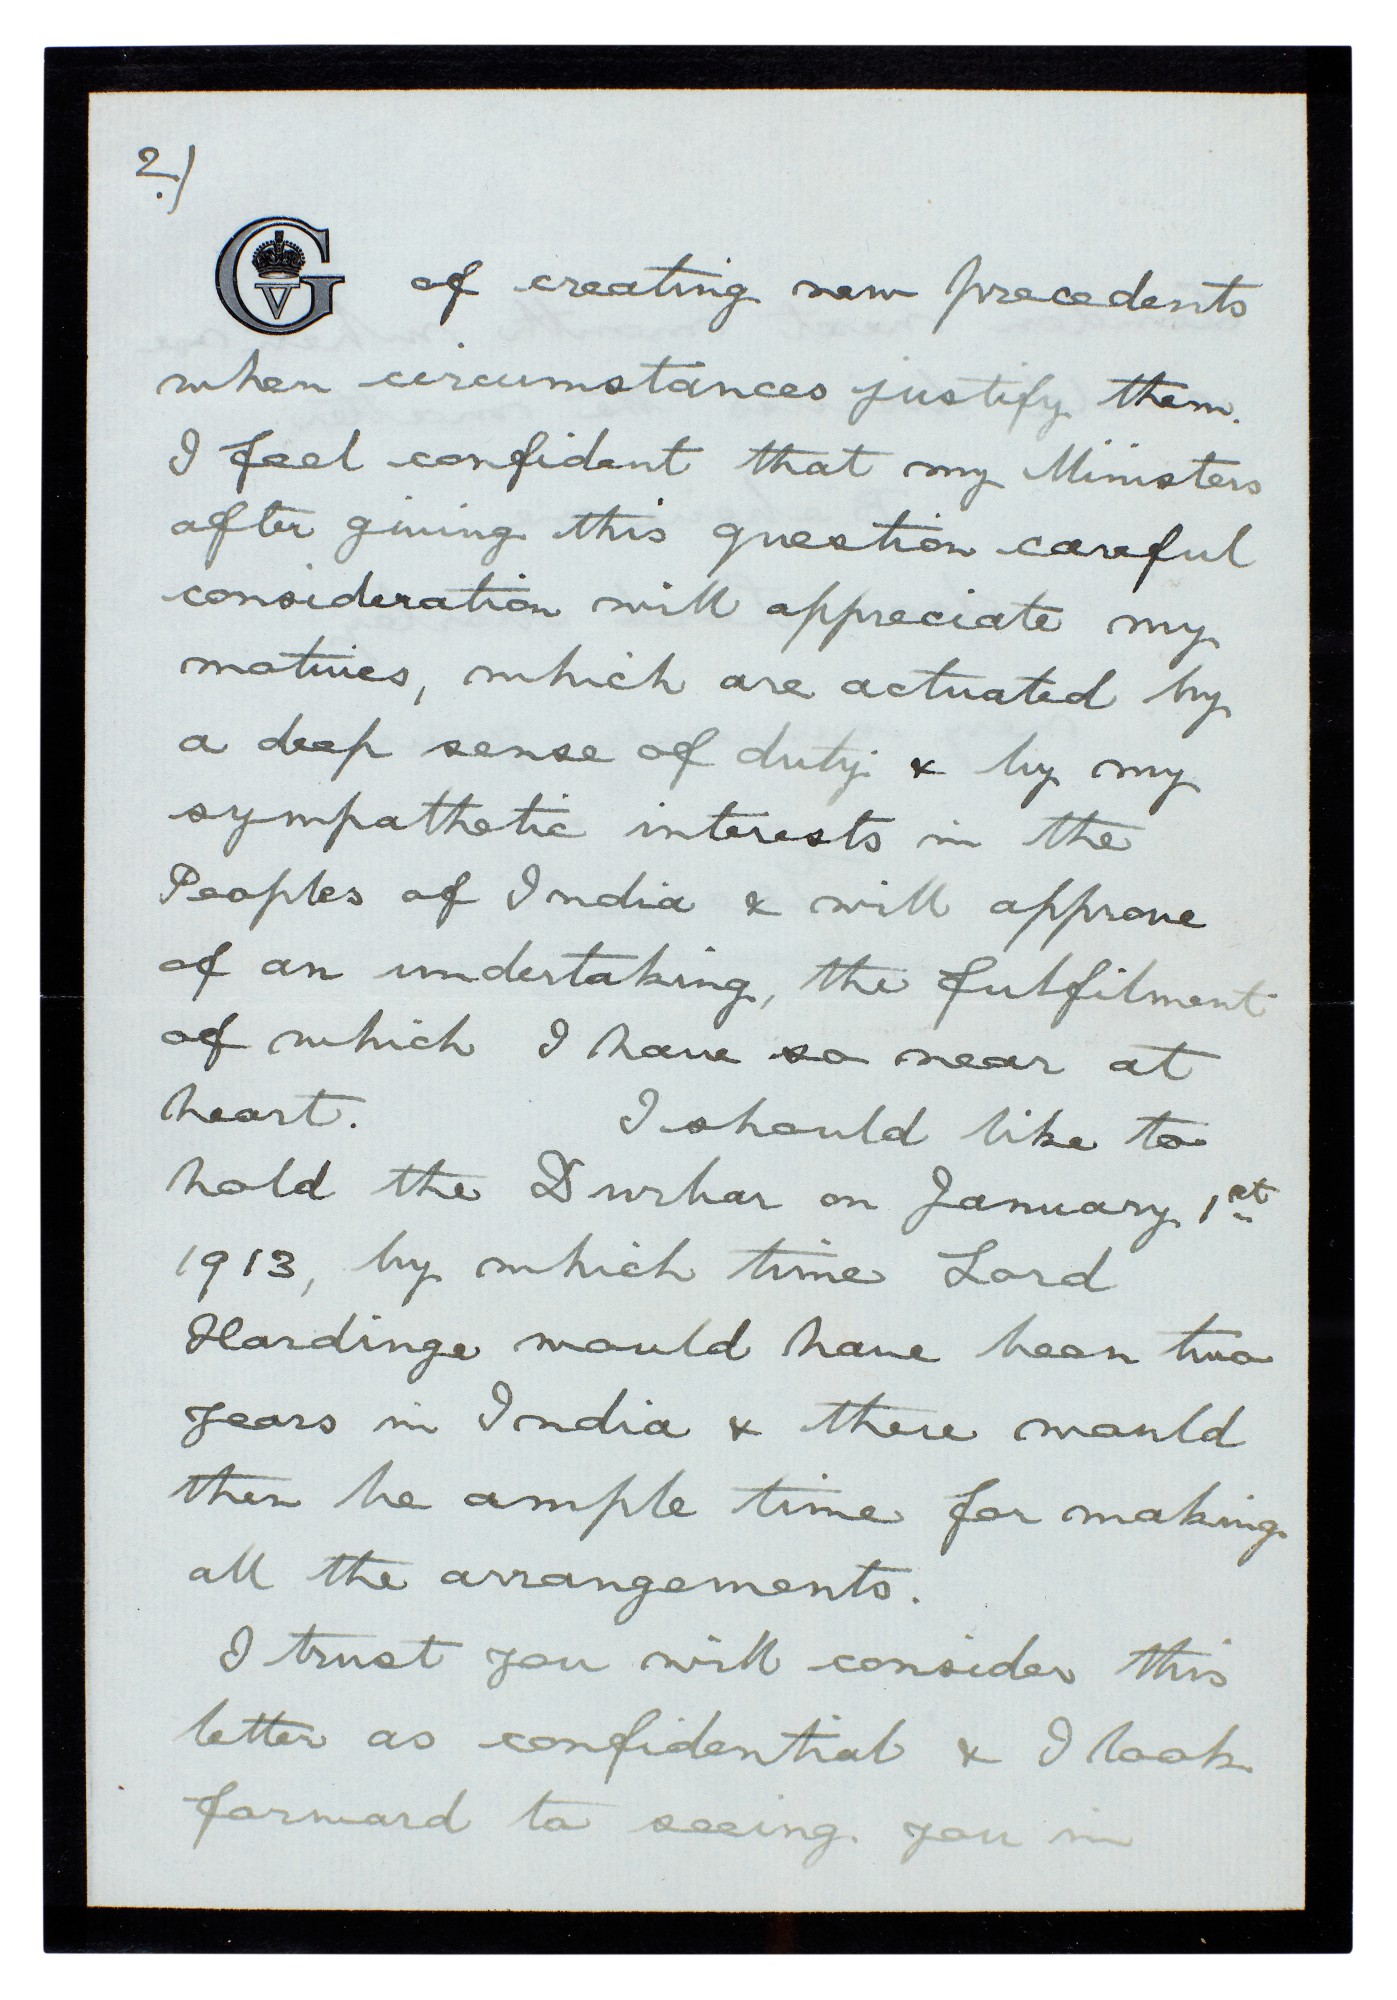 2.)
G V of creating new precedents
when circumstances justify them.
I feel confident that my Ministers
after giving this question careful
consideration will appreciate my
motives, which are actuated by
a deep sense of duty & by my
sympathetic interests in the
Peoples of India & will approve
of an undertaking, the fulfilment
of which I have so near at
heart. I should like to
hold the Durbar on January 1st
1913, by which time Lord
Hardinge would have been two
years in India & there would
then be ample time for making
all the arrangements.
I trust you will consider this
letter as confidential & I look
forward to seeing you in